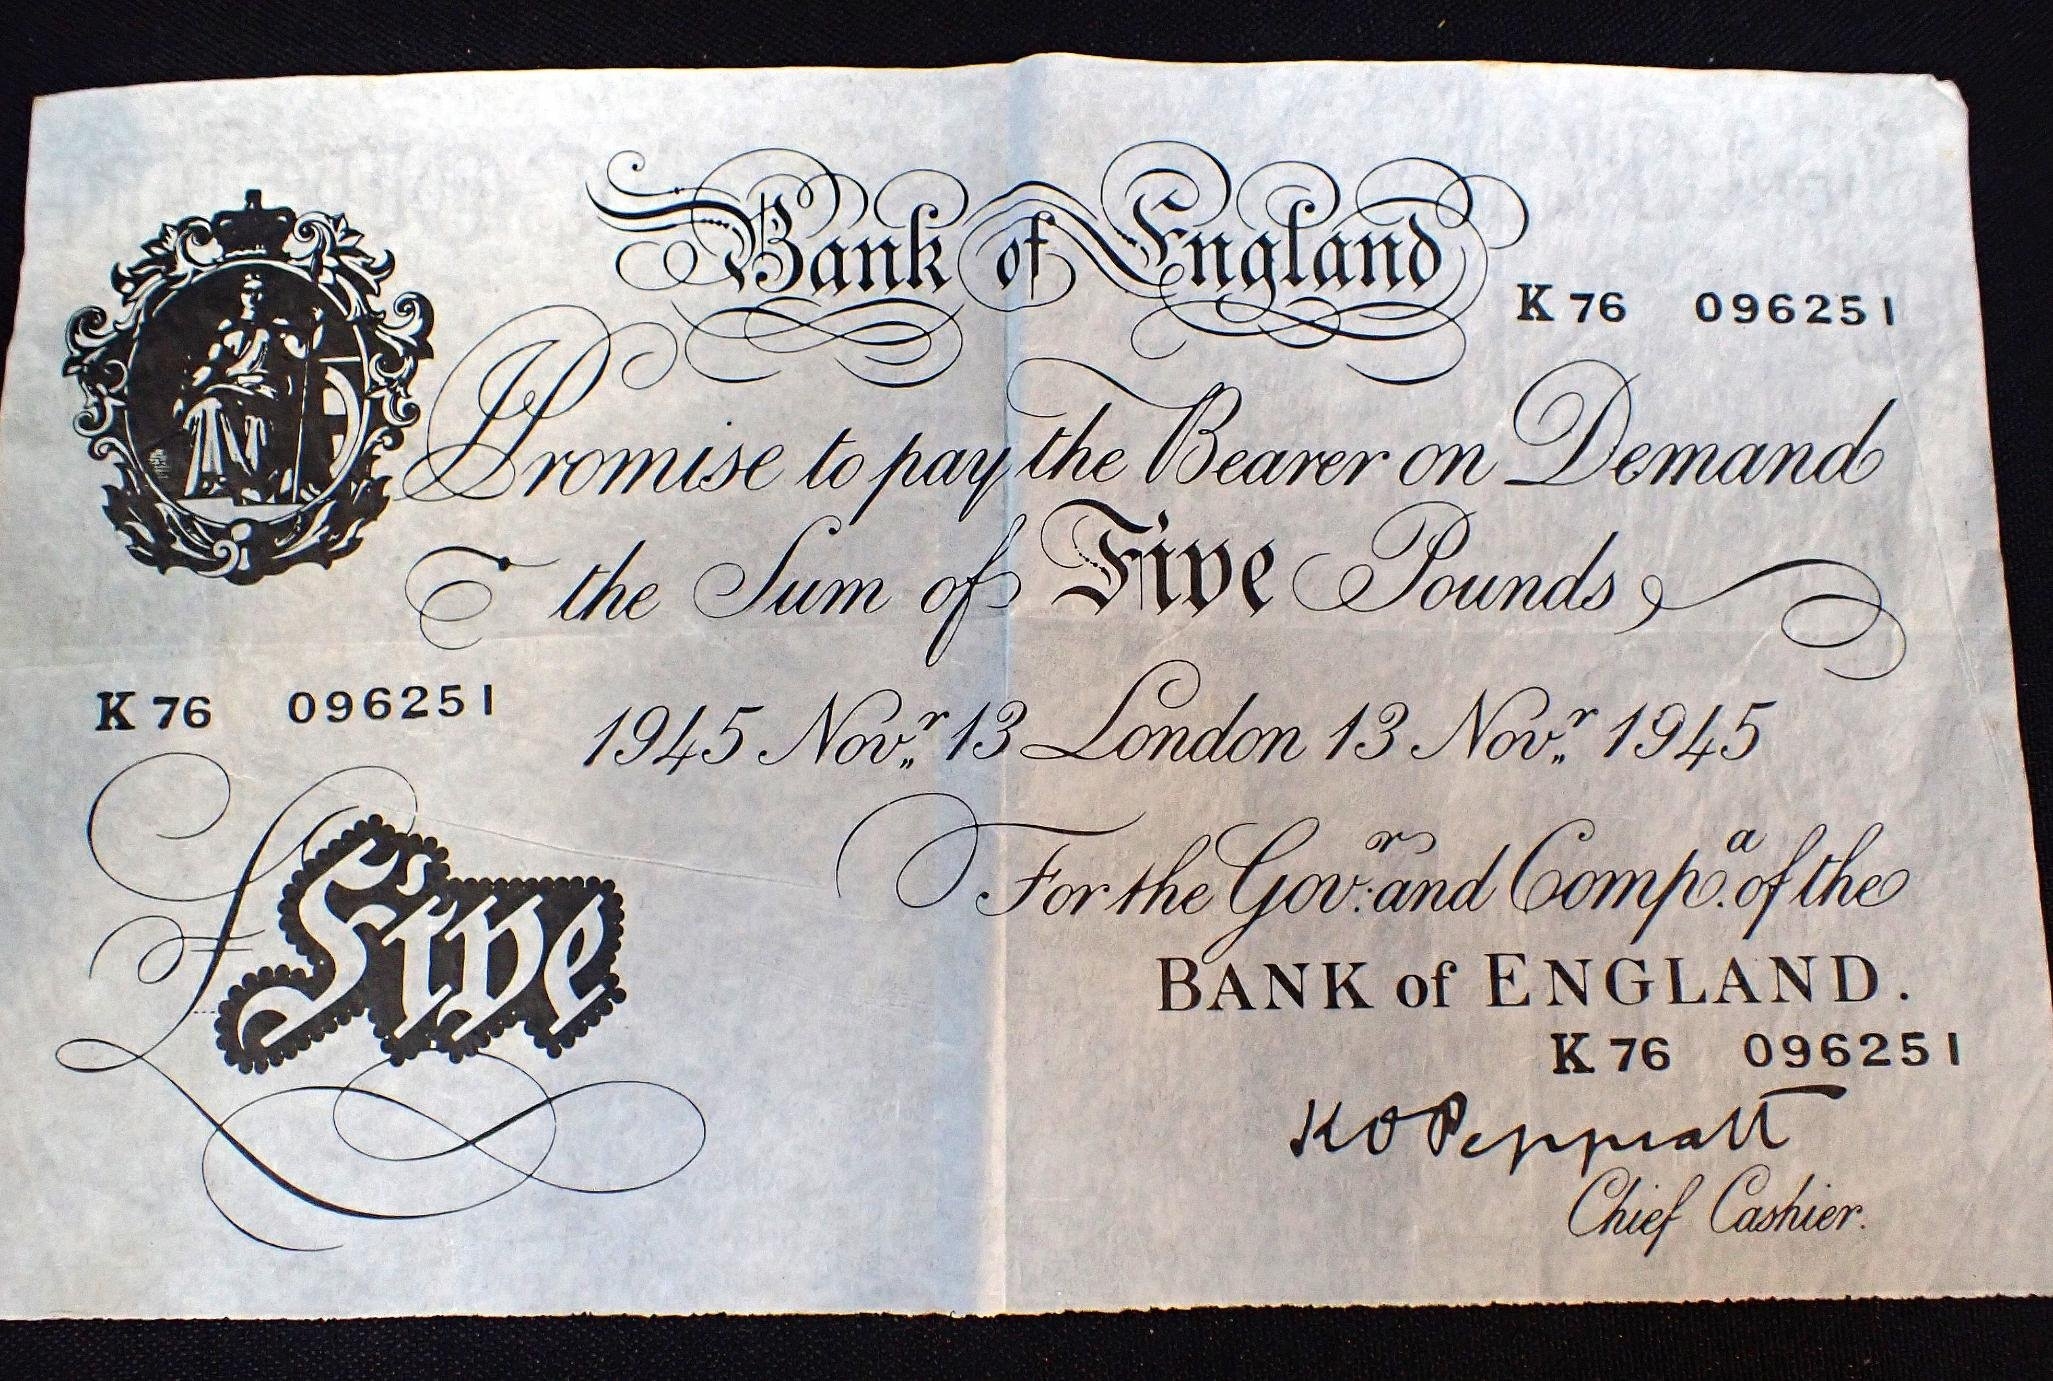 Bank of England
K 76 096251
I Promise to pay the Bearer on Demand
the Sum of Five Pounds
K 76 096251
1945 Nov.r 13 London 13 Nov.r 1945
For the Gov:r and Comp.a of the
BANK of ENGLAND.
£Five
K 76 096251
K O Peppiatt
Chief Cashier.